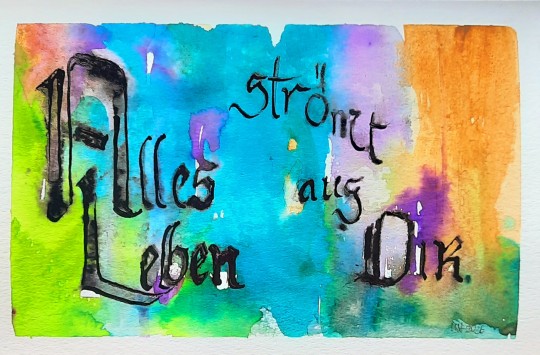 Alles
Leben
strömt
aus
Dir.